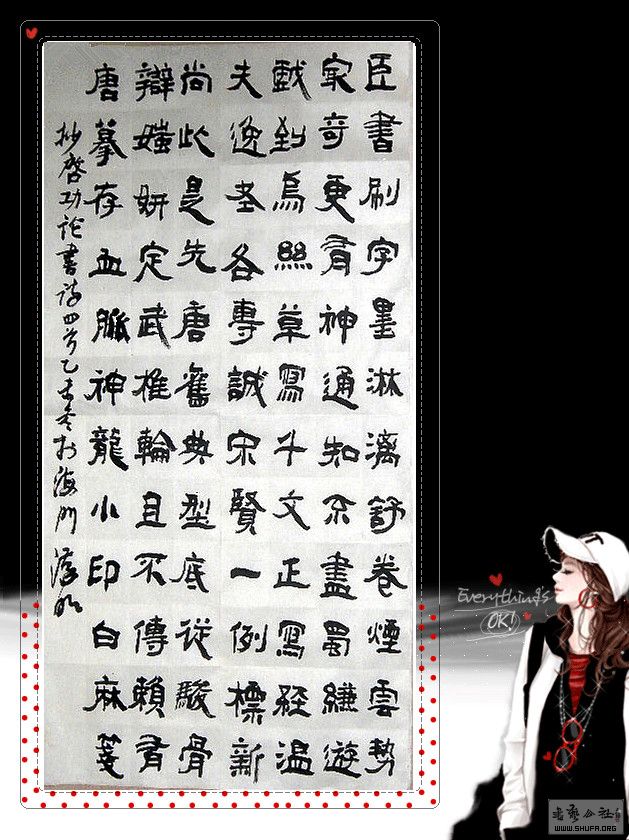 臣書刷字墨淋漓舒卷煙雲勢
家奇更有神通知不盡蜀縑遊
戲到烏絲草寫千文正寫經温
夫逸老各專誠宋賢一例標新
尚此是先唐舊典型底從駿骨
辯媸妍定武椎輪且不傳賴有
唐摹存血脈神龍小印白麻箋
抄啓功論書詩四首乙未冬於海門
Everything's
OK!
WWW.SHUFA.ORG